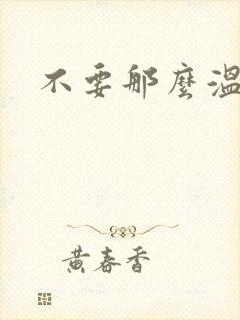 不要那麼溫
黃春香